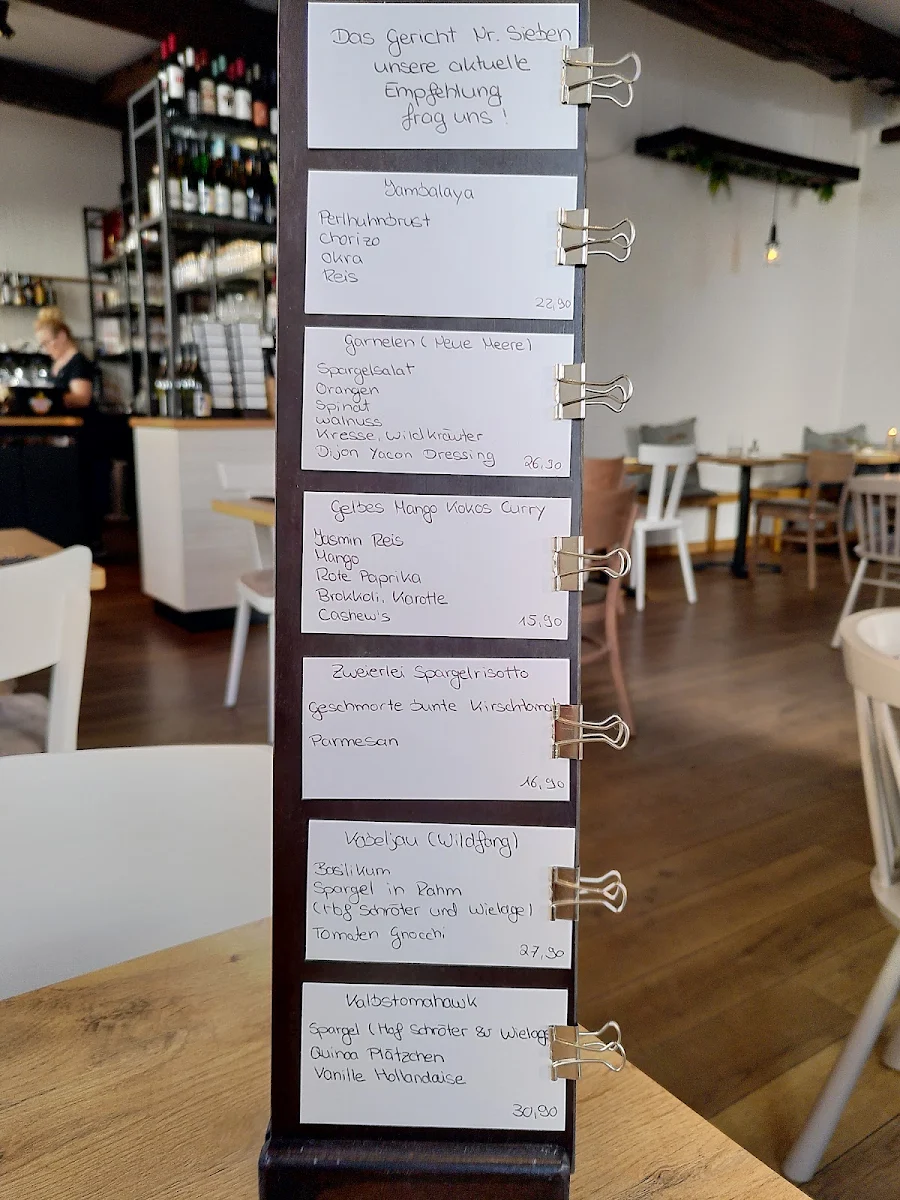 Das Gericht Nr. Sieben
unsere aktuelle
Empfehlung
frag uns !
Jambalaya
Perlhuhnbrust
Chorizo
Okra
Reis
22,90
Garnelen (Neue Meere)
Spargelsalat
Orangen
Spinat
Walnuss
Kresse, Wildkräuter
Dijon Yacon Dressing 26,90
Gelbes Mango Kokos Curry
Jasmin Reis
Mango
Rote Paprika
Brokkoli, Karotte
Cashew's 15,90
Zweierlei Spargelrisotto
geschmorte bunte Kirschtomat
Parmesan
16,90
Kabeljau (Wildfang)
Basilikum
Spargel in Rahm
(Hof Schröter und Wielage)
Tomaten Gnocchi
27,90
Kalbstomahawk
Spargel (Hof Schröter & Wielage
Quinoa Plätzchen
Vanille Hollandaise
30,90